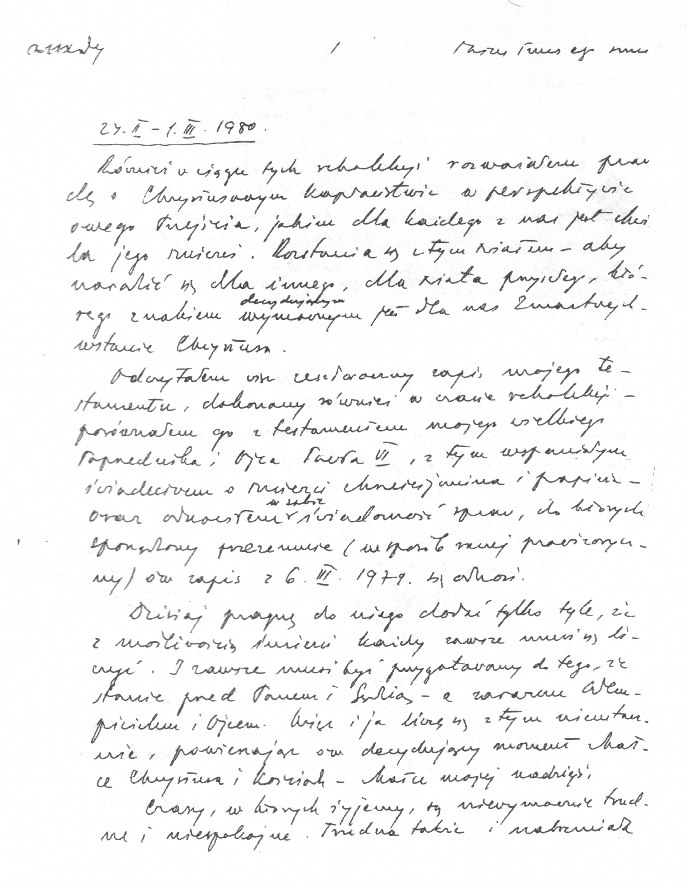 1 Totus Tuus ego sum
24.II – 1.III.1980.
Również w ciągu tych rekolekcji rozważałem praw
dę o Chrystusowym Kapłaństwie w perspektywie
owego Przejścia, jakim dla każdego z nas jest chwi
la jego śmierci. Rozstania się z tym światem – aby
narodzić się dla innego, dla świata przyszłego, któ-
decydującym
rego znakiem wymownym jest dla nas Zmartwych-
wstanie Chrystusa.
Odczytałem więc zeszłoroczny zapis mojego te-
stamentu, dokonany również w czasie rekolekcji –
porównałem go z testamentem mojego wielkiego
Poprzednika i Ojca Pawła VI, z tym wspaniałym
świadectwem o śmierci chrześcijanina i papieża –
w sobie
oraz odnowiłem świadomość spraw, do których
sporządzony przeze mnie (w sposób raczej prowizorycz-
ny) ów zapis z 6.III.1979. się odnosi.
Dzisiaj pragnę do niego dodać tylko tyle, że
z możliwością śmierci każdy zawsze musi się li-
czyć. I zawsze musi być przygotowany do tego, że
stanie przed Panem i Sędzią – a zarazem Odku-
picielem i Ojcem. Więc i ja liczę się z tym nieustan-
nie, powierzając ów decydujący moment Mat-
ce Chrystusa i Kościoła – Matce mojej nadziei.
Czasy, w których żyjemy, są niewymownie trud-
ne i niespokojne. Trudna także i nabrzmiała